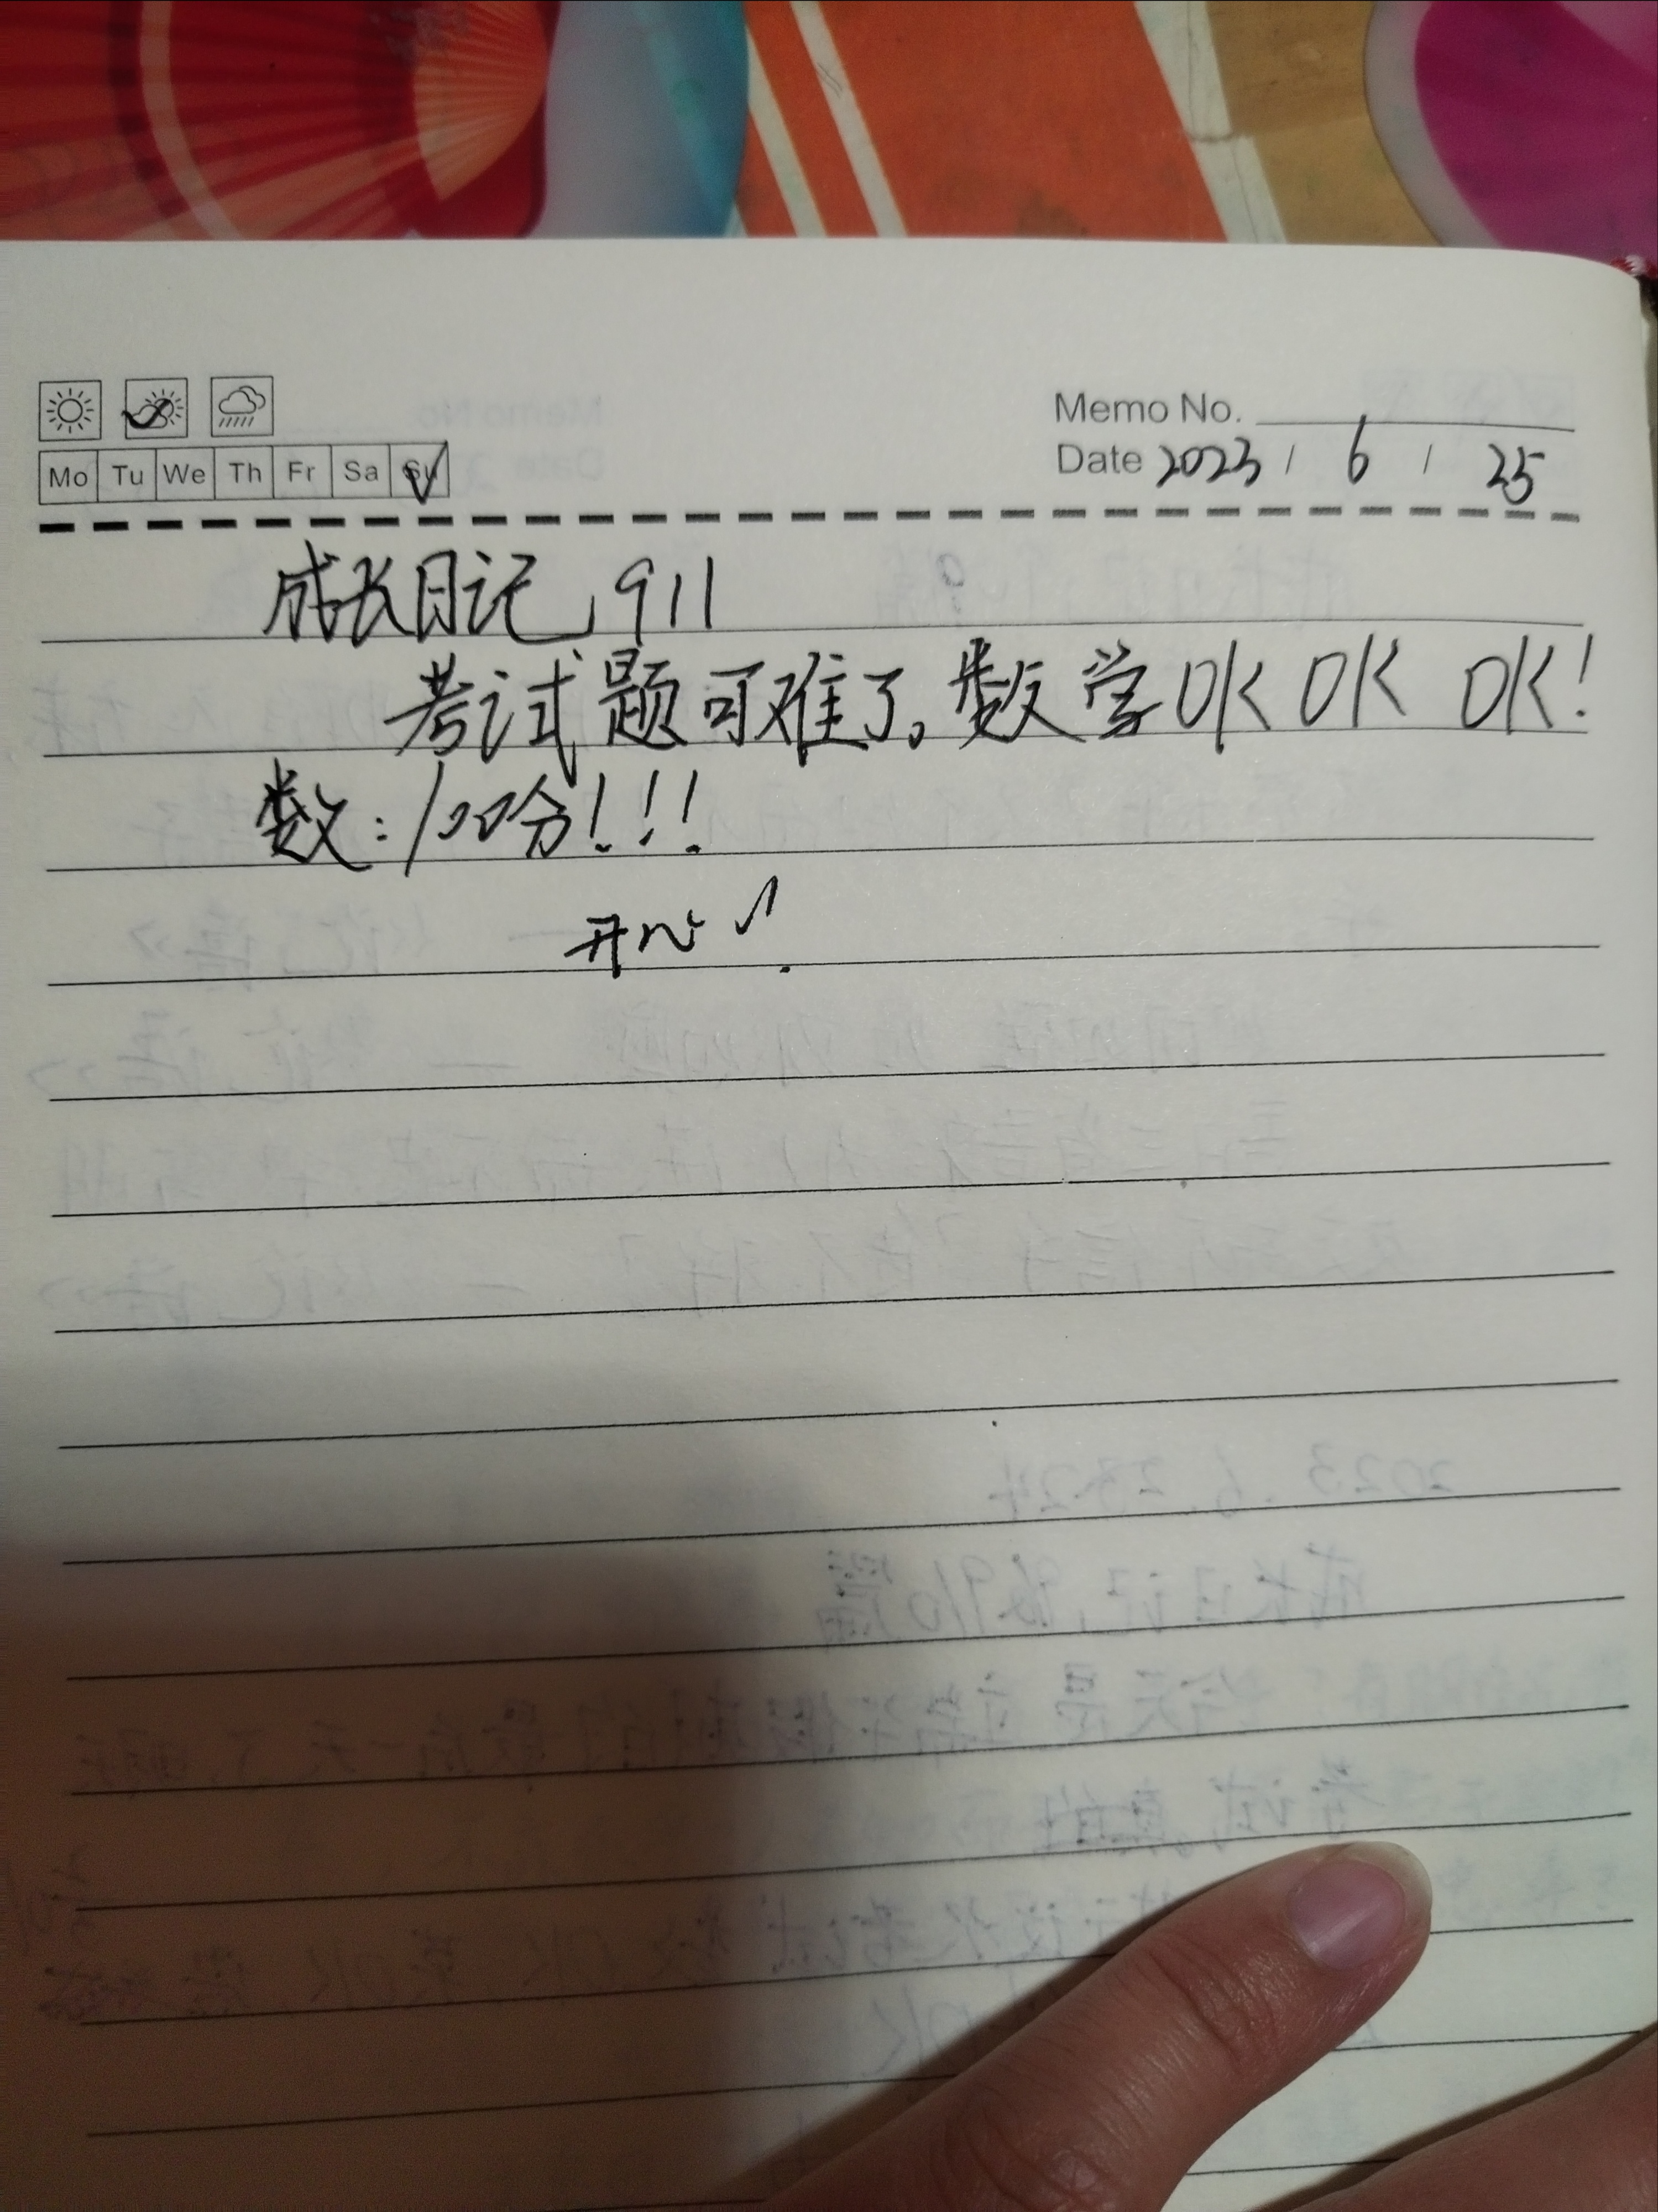 Memo No.
Date 2023 / 6 / 25
Mo Tu We Th Fr Sa Su
成长日记 911
考试题可难了。数学OK OK OK!
数:100分!!!
开心!